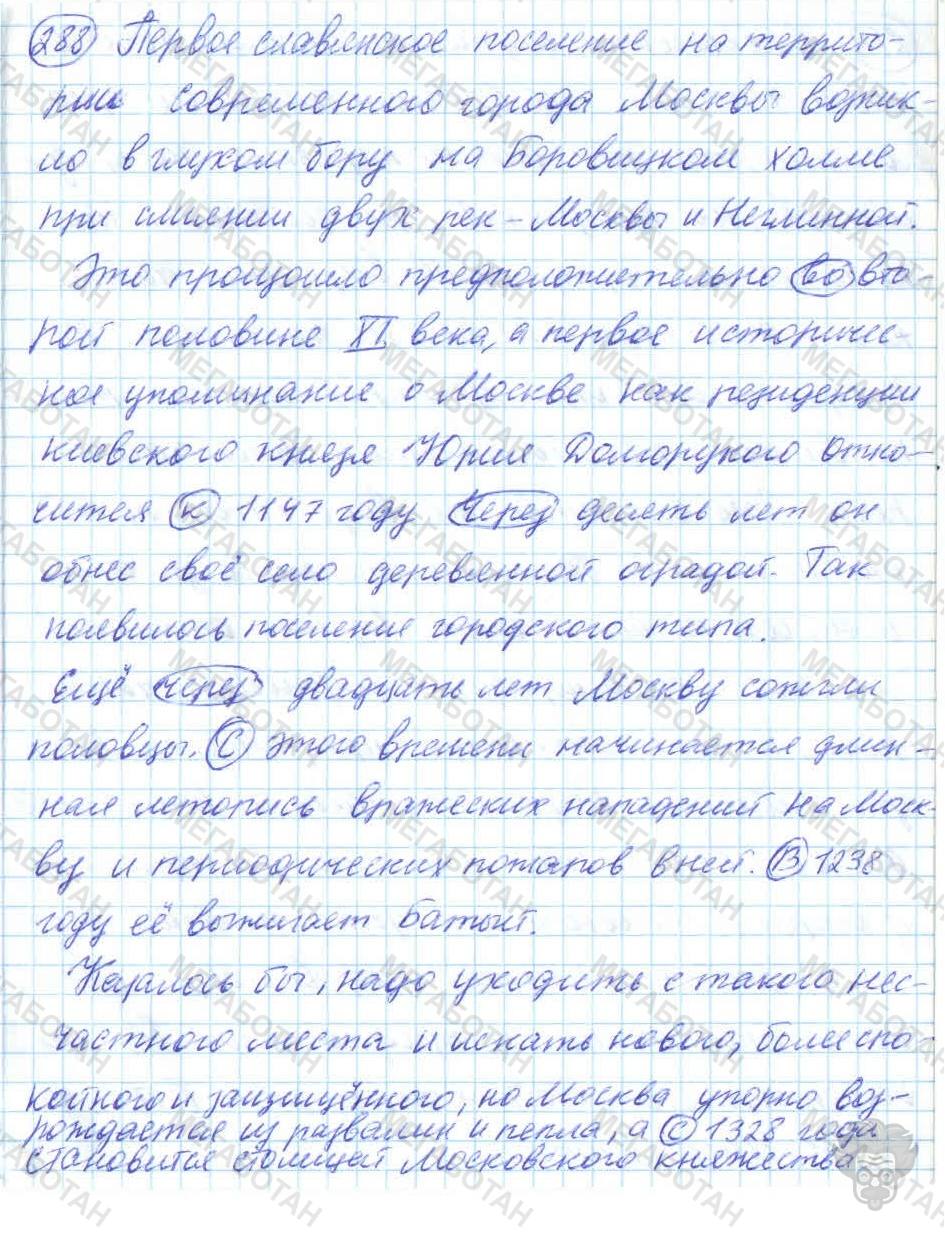 288 Первое славянское поселение на террито-
рии современного города Москвы возник-
ло в глухом бору на Боровицком холме
при слиянии двух рек - Москвы и Неглинной.
Это произошло предположительно во вто-
рой половине XI века, а первое историчес-
кое упоминание о Москве как резиденции
киевского князя Юрия Долгорукого отно-
сится к 1147 году Через десять лет он
обнёс своё село деревянной оградой. Так
появилось поселение городского типа.
Ещё через двадцать лет Москву сожгли
половцы. С этого времени начинается длин-
ная летопись вражеских нападений на Моск-
ву и периодических пожаров в ней. В 1238
году её выжигает Батый.
Казалось бы, надо уходить с такого нес-
частного места и искать нового, более спо-
койного и защищённого, но Москва упорно воз-
рождается из развалин и пепла, а с 1328 года
становится столицей Московского княжества
МЕГАБОТАН